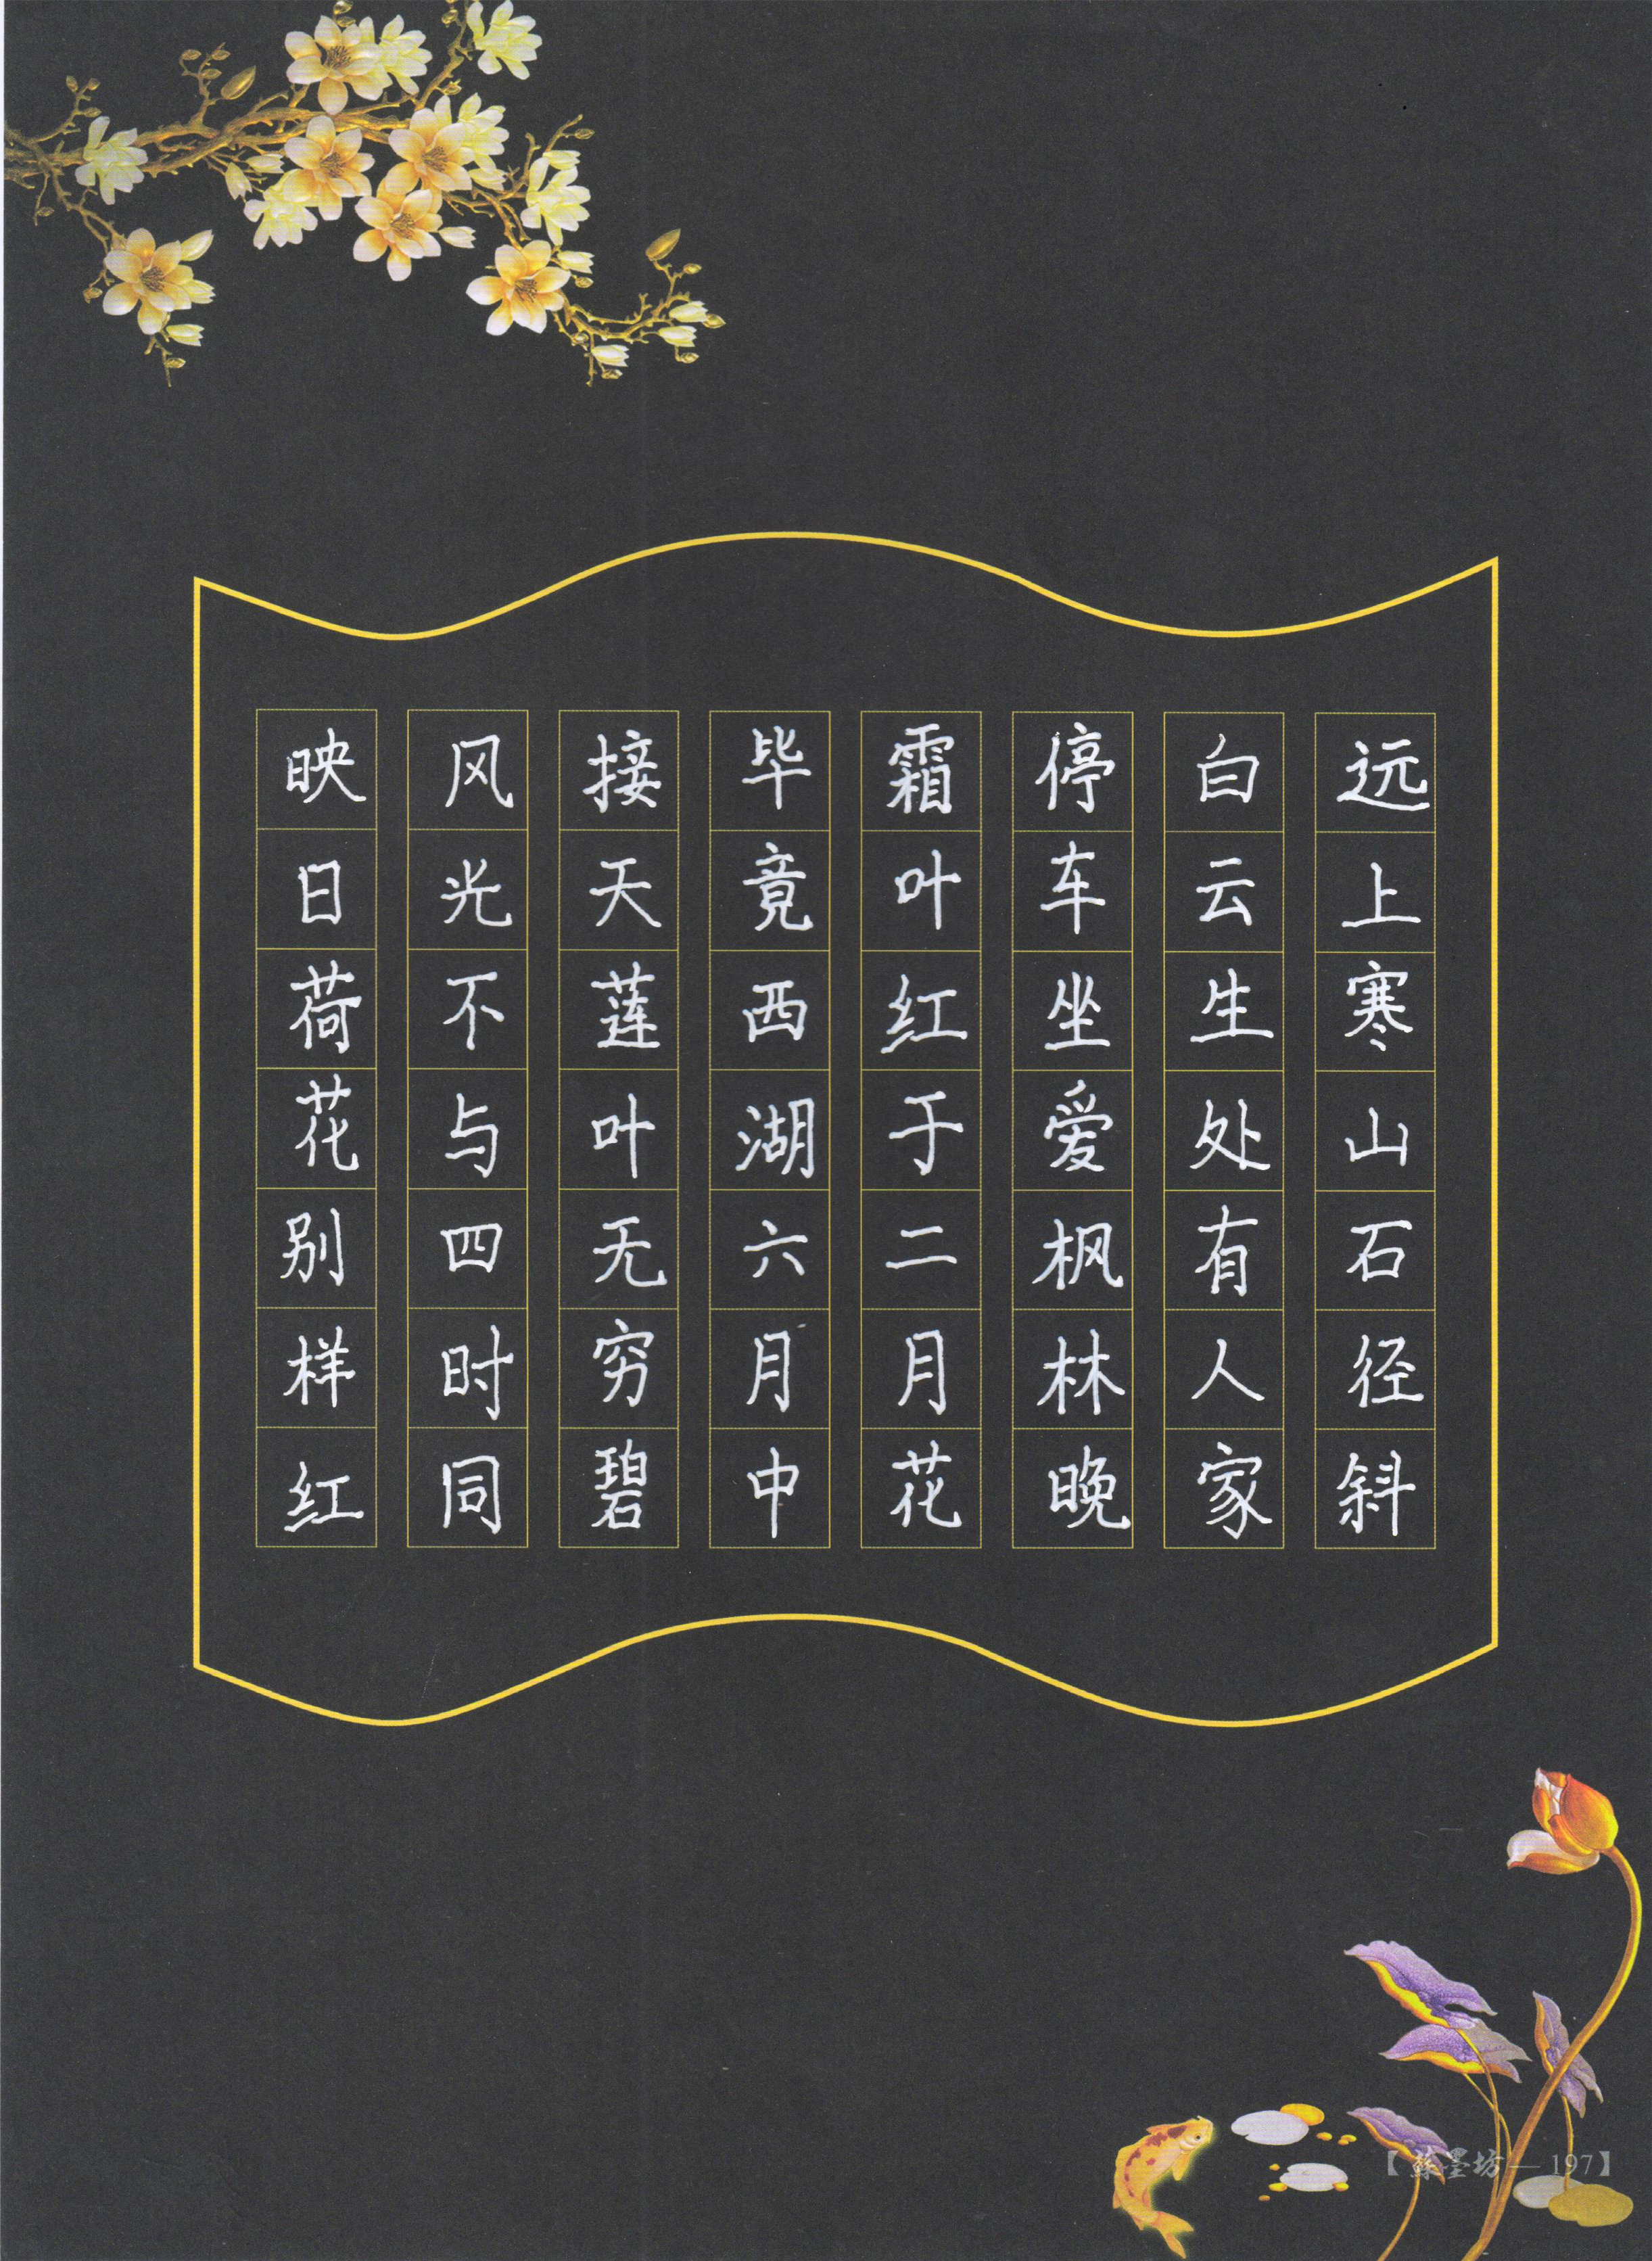 远上寒山石径斜
白云生处有人家
停车坐爱枫林晚
霜叶红于二月花
毕竟西湖六月中
风光不与四时同
接天莲叶无穷碧
映日荷花别样红
【蘇墨坊—197】